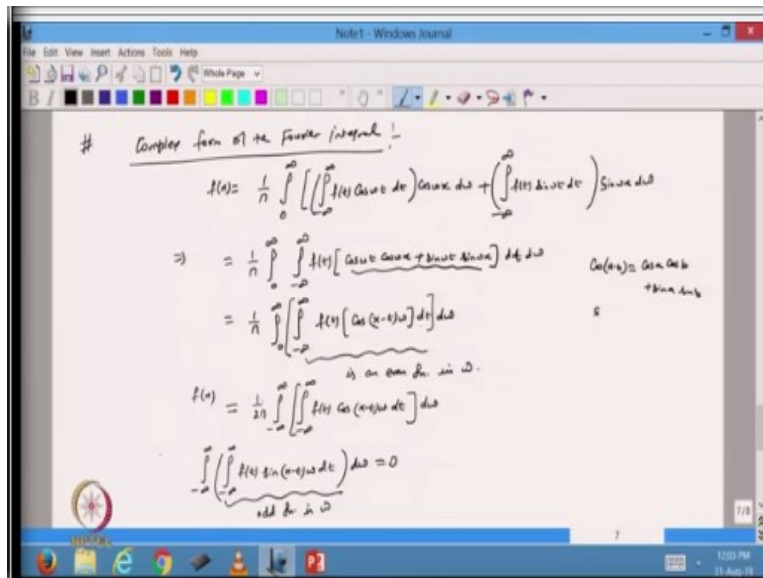 Note1 - Windows Journal
File Edit View Insert Actions Tools Help
Whole Page
B I
# Complex form of the Fourier integral :-
f(x) = 1/π ∫_0^∞ [(∫_{-∞}^∞ f(t) Cosωt dt) Cosωx dω + (∫_{-∞}^∞ f(t) Sinωt dt) Sinωx dω
⇒ = 1/π ∫_0^∞ ∫_{-∞}^∞ f(t) [Cosωt Cosωx + Sinωt Sinωx] dt dω
Cos(a-b) = Cosa Cosb
+ Sina Sinb
= 1/π ∫_0^∞ [∫_{-∞}^∞ f(t) [Cos(x-t)ω] dt] dω
is an even fn. in ω.
f(x) = 1/2π ∫_{-∞}^∞ [∫_{-∞}^∞ f(t) Cos(x-t)ω dt] dω
∫_{-∞}^∞ (∫_{-∞}^∞ f(t) Sin(x-t)ω dt) dω = 0
odd fn. in ω
NPTEL
7
7/8
12:03 PM
31-Aug-19